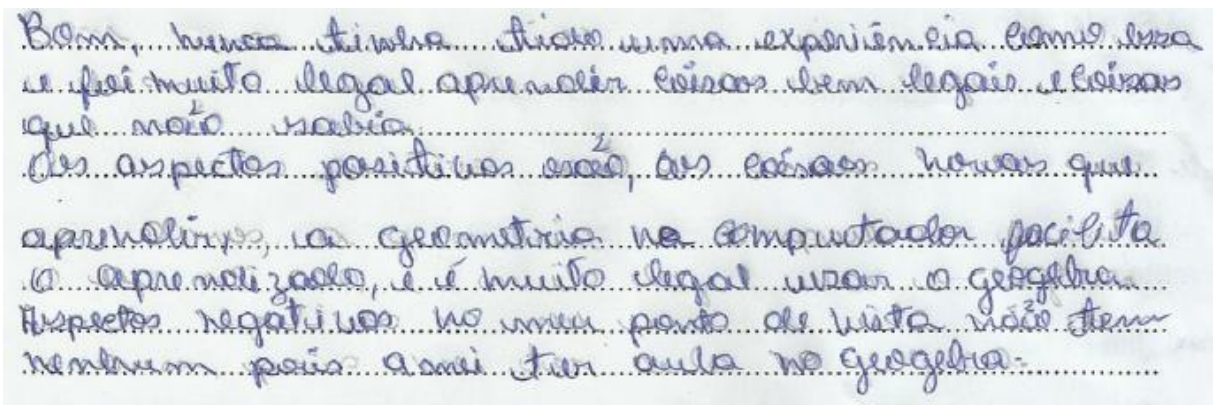 Bom, nunca tinha tido uma experiência como essa
e foi muito legal aprender coisas bem legais e coisas
que não sabia.
Os aspectos positivos são, as coisas novas que
aprendi, a geometria no computador facilita
o aprendizado, e é muito legal usar o geogebra.
Aspectos negativos no meu ponto de vista não tem
nenhum pois amei ter aula no geogebra.